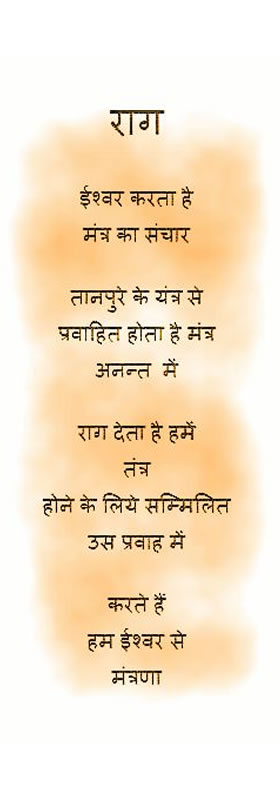 राग
ईश्वर करता है
मंत्र का संचार
तानपुरे के यंत्र से
प्रवाहित होता है मंत्र
अनन्त में
राग देता है हमें
तंत्र
होने के लिये सम्मिलित
उस प्रवाह में
करते हैं
हम ईश्वर से
मंत्रणा